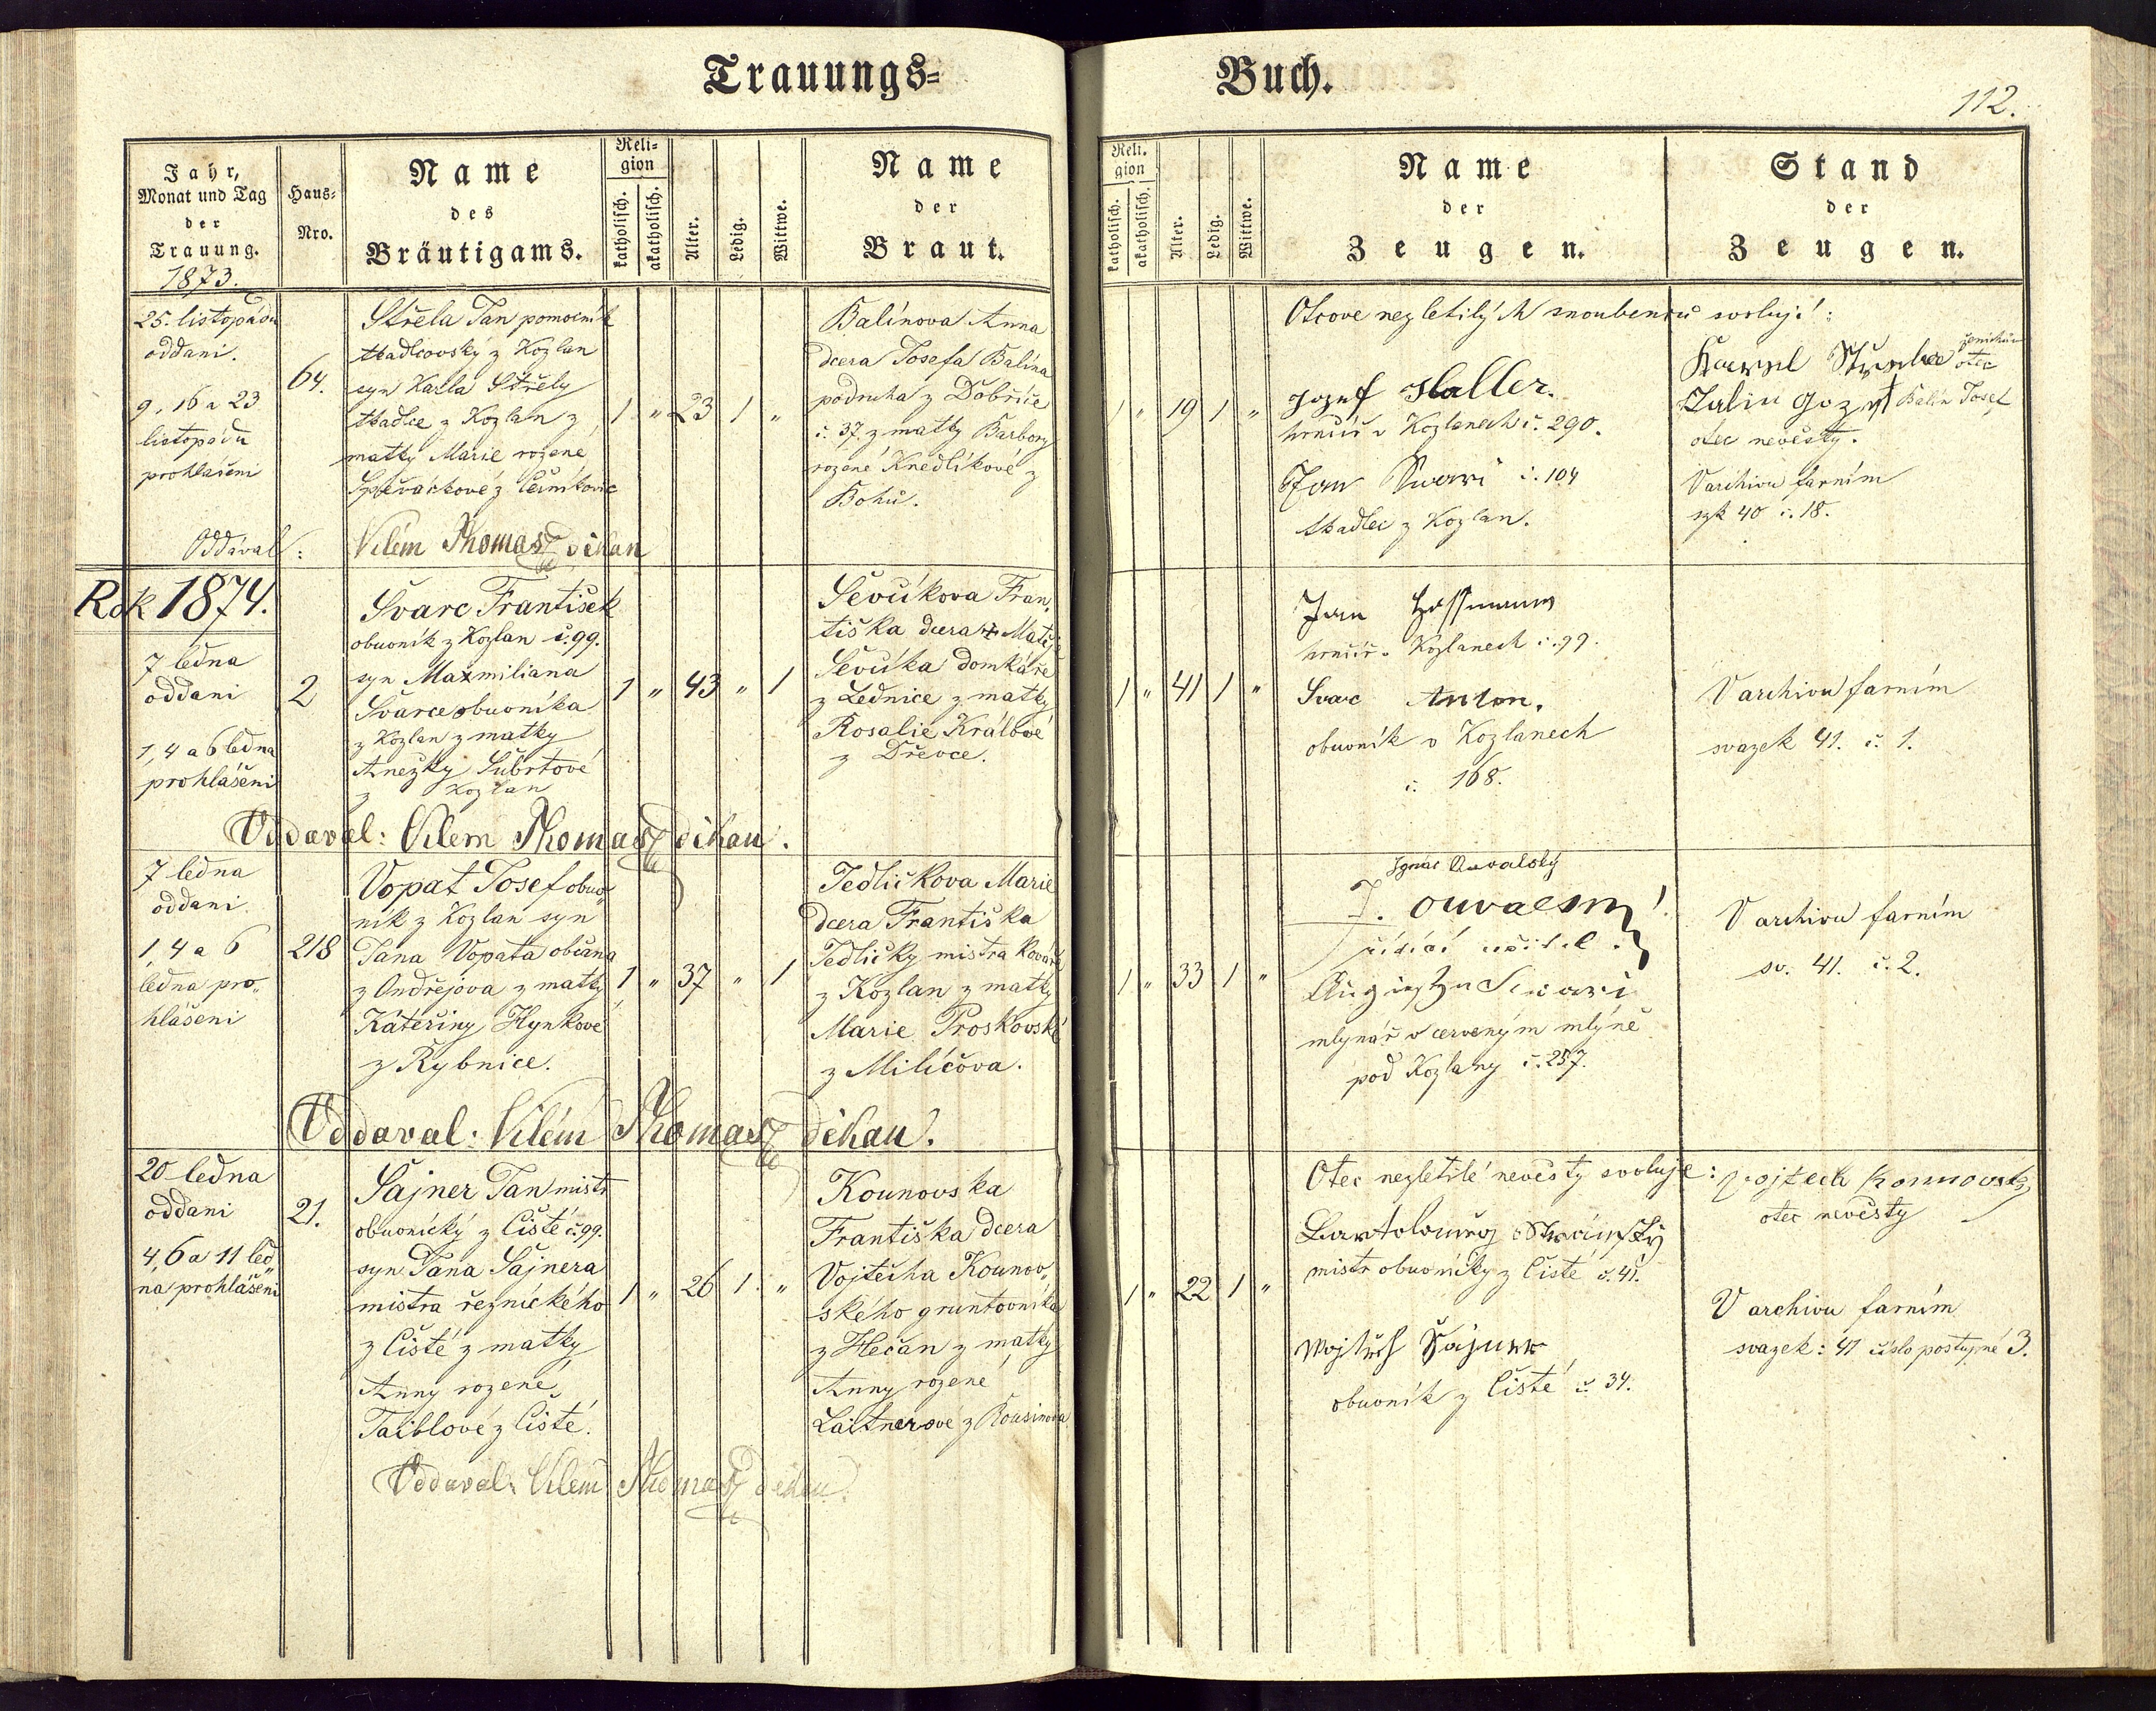 Trauungs= Buch.
112.
Jahr,
Monat und Tag
der
Trauung.
1873.
Haus=
Nro.
Name
des
Bräutigams.
Reli=
gion
katholisch.
akatholisch.
Alter.
Ledig.
Wittwe.
Name
der
Braut.
Reli.
gion
katholisch.
akatholisch.
Alter.
Ledig.
Wittwe.
Name
der
Zeugen.
Stand
der
Zeugen.
25. listopadu
oddani.
9, 16 a 23
listopadu
prohlášeni
64.
Střela Jan pomocník
tkadlcovský z Kozlan
syn Karla Střely
tkadlce z Kozlan z
matky Marie rozené
Spěváčkové z Černíkovic
1 " 23 1 "
Balínova Anna
dcera Josefa Balína
podruha z Dobříče
č. 37. z matky Barbory
rozené Knedlíkové z
Bohů.
1 " 19 1 "
Otcove nezletilých snoubenců svolují:
Jozef Haller.
hrnčíř v Kozlanech č. 290.
Jan Swarc č. 104
tkadlec z Kozlan.
Karel Střela ženichův
otec
Balin Jozef Balín Josef
otec nevěsty.
V archivu farním
szk 40 č. 18.
Oddával: Vilém Thomas děkan
Rok 1874.
7 ledna
oddani
1, 4 a 6 ledna
prohlášeni
2
Švarc František
obuvník z Kozlan č. 99.
syn Maxmiliana
Švarce obuvníka
z Kozlan z matky
Anežky Šubrtové
z Kozlan
1 " 43 " 1
Ševčíkova Fran,
tiška dcera + Matěje
Ševčíka domkáře
z Lednice z matky
Rosalie Králové
z Dřevce.
1 " 41 1 "
Jan Hoffmann
hrnčíř v Kozlanech č. 99.
Svarc Anton.
obuvník v Kozlanech
č. 168.
V archivu farním
svazek 41. č. 1.
Oddaval: Vilém Thomas děkan.
7 ledna
oddani.
1, 4 a 6
ledna pro„
hlášeni
218
Vopat Josef obuv„
ník z Kozlan syn
Jana Vopata občana
z Ondřejova z matky
Kateřiny Hynkové
z Rybnice.
1 " 37 " 1
Jedličkova Marie
dcera Františka
Jedličky mistra kováře
z Kozlan z matky
Marie Proskovské
z Milíčova.
1 " 33 1 "
Ignác
řídící učitel.
Augustyn Swarc
mlynář v červeným mlýně
pod Kozlany č. 257.
V archivu farním
sv. 41. č. 2.
Oddaval: Vilém Thomas děkan.
20 ledna
oddani
4, 6 a 11 led„
na prohlášeni
21.
Šajner Jan mistr
obuvnický z Čisté č. 99.
syn Jana Šajnera
mistra řeznického
z Čisté z matky
Anny rozené
Taiblové z Čisté.
1 " 26 1. "
Kounovska
Františka dcera
Vojtěcha Kounov„
ského gruntovníka
z Hečan z matky
Anny rozené
Laitnerové z Rousinova
1 " 22 1 "
Otec nezletilé nevěsty svoluje: Vojtech Kounovsky
otec nevěsty
Bartoloměj
mistr obuvnický z Čisté č. 41.
Wojtěch Šajner
obuvník z Čisté č. 34.
V archivu farním
svazek: 41 číslo postupné 3.
Oddaval: Vilém Thomas děkan.